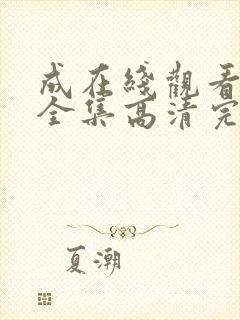 成在綫觀看
全集高清完
夏潮